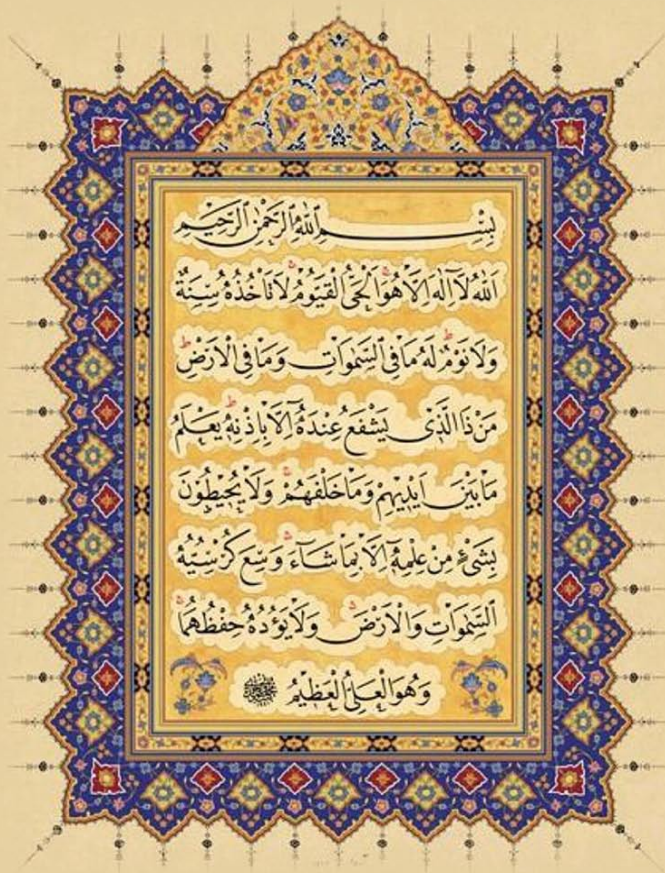 بِسْمِ اللهِ الرَّحْمٰنِ الرَّحِيمِ
اَللهُ لَٓا اِلٰهَ اِلَّا هُوَ اَلْحَىُّ الْقَيُّومُ لَا تَأْخُذُهُ سِنَةٌ
وَلَا نَوْمٌ لَهُ مَا فِى السَّمٰوَاتِ وَمَا فِى الْاَرْضِ
مَنْ ذَا الَّذِى يَشْفَعُ عِنْدَهُٓ اِلَّا بِاِذْنِهِ يَعْلَمُ
مَا بَيْنَ اَيْدِيهِمْ وَمَا خَلْفَهُمْ وَلَا يُحِيطُونَ
بِشَىْءٍ مِنْ عِلْمِهِٓ اِلَّا بِمَا شَٓاءَ وَسِعَ كُرْسِيُّهُ
السَّمٰوَاتِ وَالْاَرْضَ وَلَا يَؤُدُهُ حِفْظُهُمَا
وَهُوَ الْعَلِىُّ الْعَظِيمُ